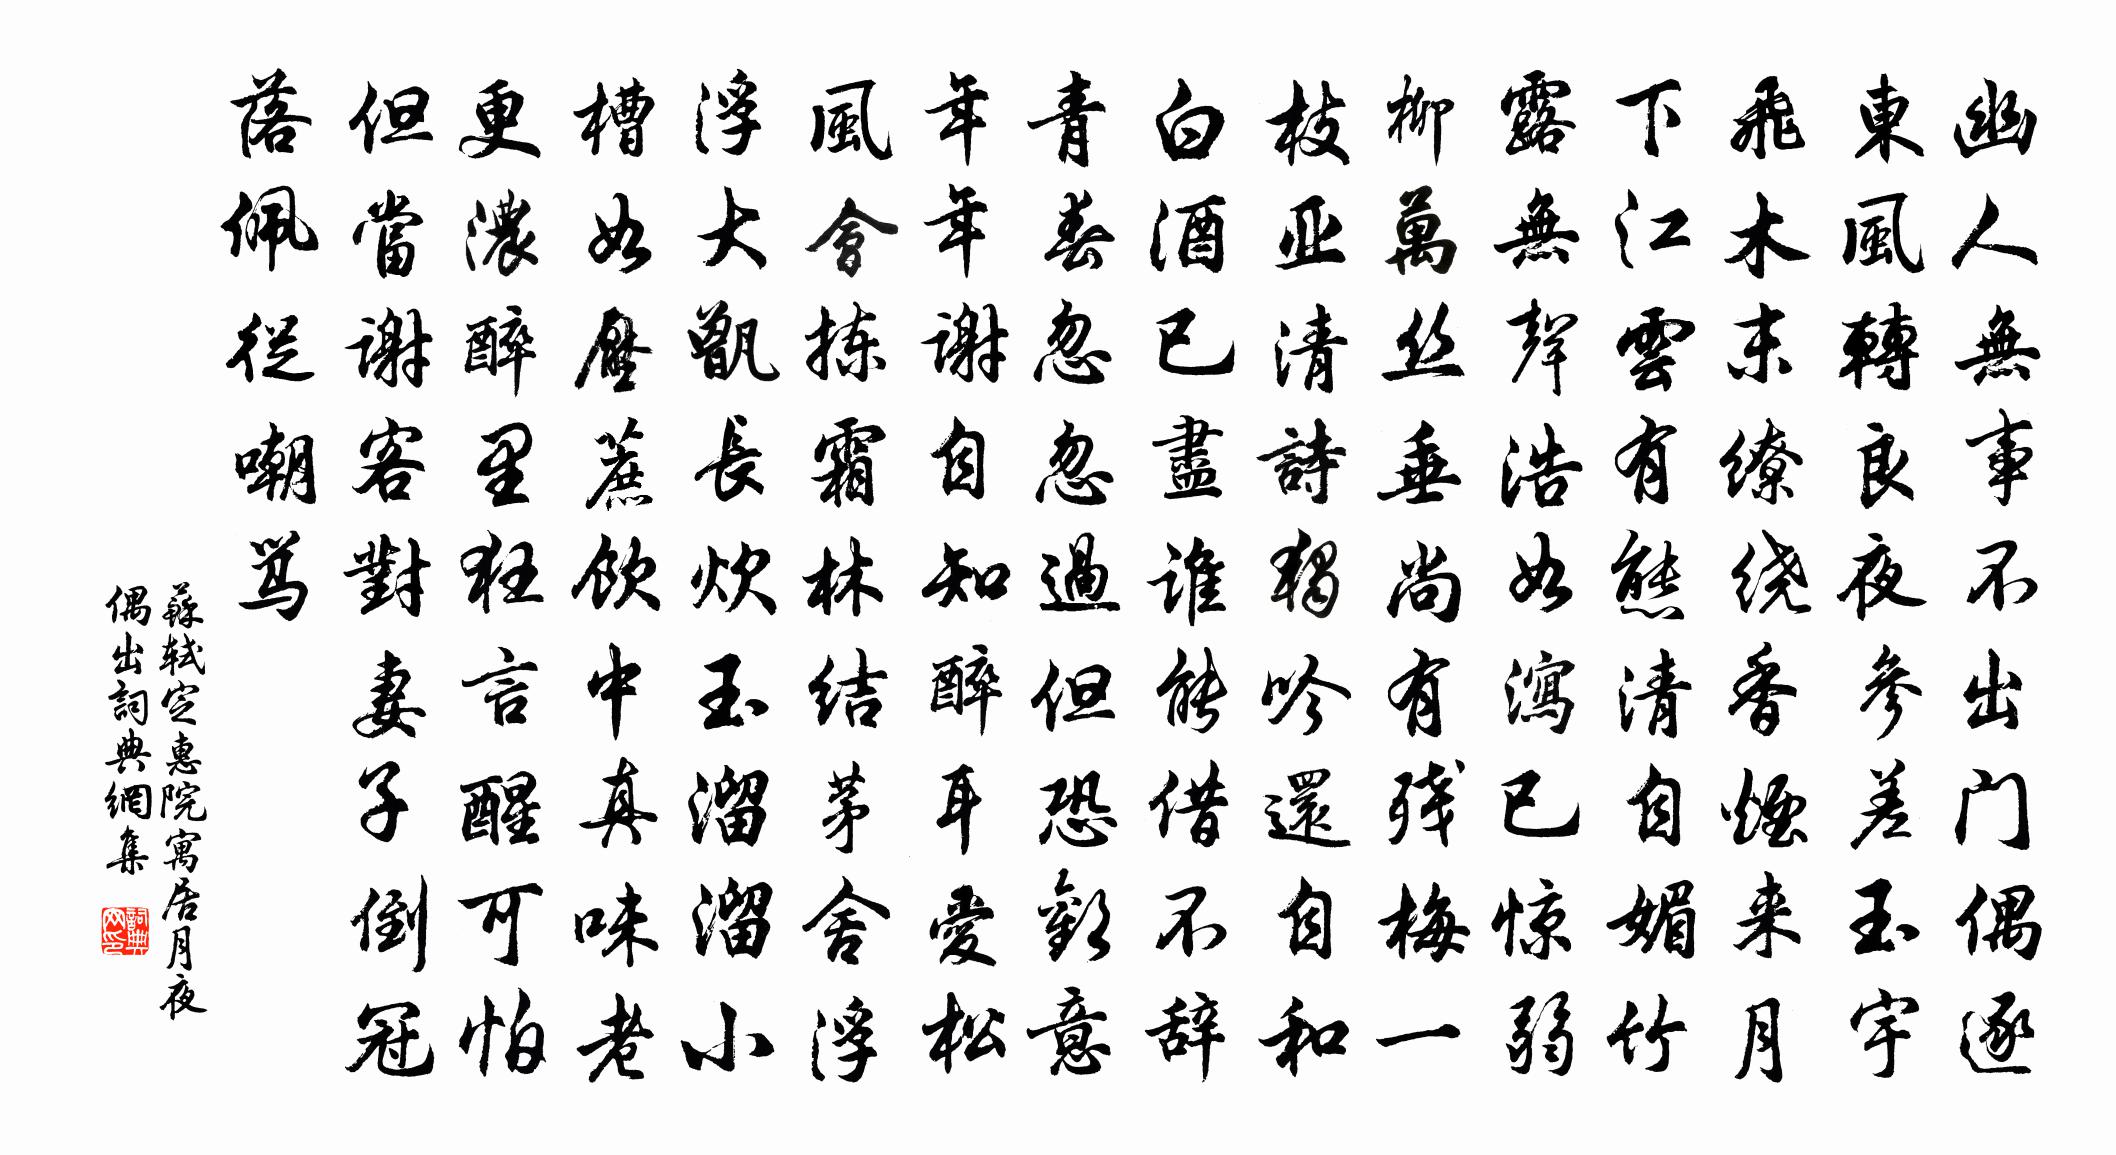 幽人無事不出门偶逐
東風轉良夜参差玉宇
飛木末缭绕香煙来月
下江雲有態清自媚竹
露無聲浩如瀉已惊弱
柳萬丝垂尚有残梅一
枝亚清詩獨吟還自和
白酒已盡谁能借不辞
青春忽忽過但恐歡意
年年谢自知醉耳愛松
風會拣霜林结茅舍浮
浮大甑長炊玉溜溜小
槽如壓蔗飲中真味老
更濃醉里狂言醒可怕
但當谢客對妻子倒冠
落佩從嘲骂
蘇轼定惠院寓居月夜
偶出詞典網集
詞典网印